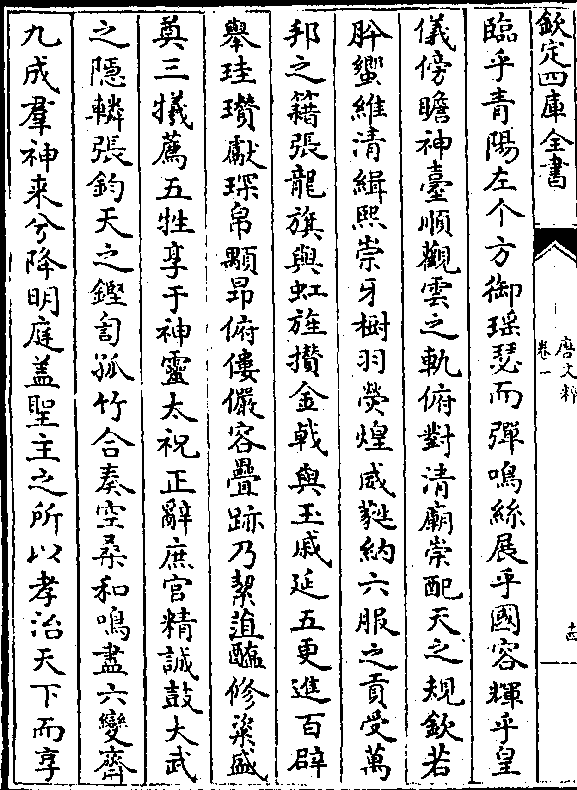 欽定四庫全書
唐文粹
卷一
十四
臨乎青陽左个方御瑶瑟而彈鳴絲展乎國容輝乎皇
儀傍瞻神臺順觀雲之軌俯對清廟崇配天之規欽若
肸蠁維清緝熙崇牙樹羽熒煌葳蕤納六服之貢受萬
邦之籍張龍旗與虹旌攅金戟與玉戚延五更進百辟
舉珪瓚獻琛帛顒昂俯僂儼容疊跡乃潔菹醢修粢盛
奠三犧薦五牲享于神靈太祝正辭庶官精誠鼓大武
之隱轔張鈞天之鏗訇孤竹合奏空桑和鳴盡六變齊
九成羣神来兮降明庭盖聖主之所以孝治天下而享